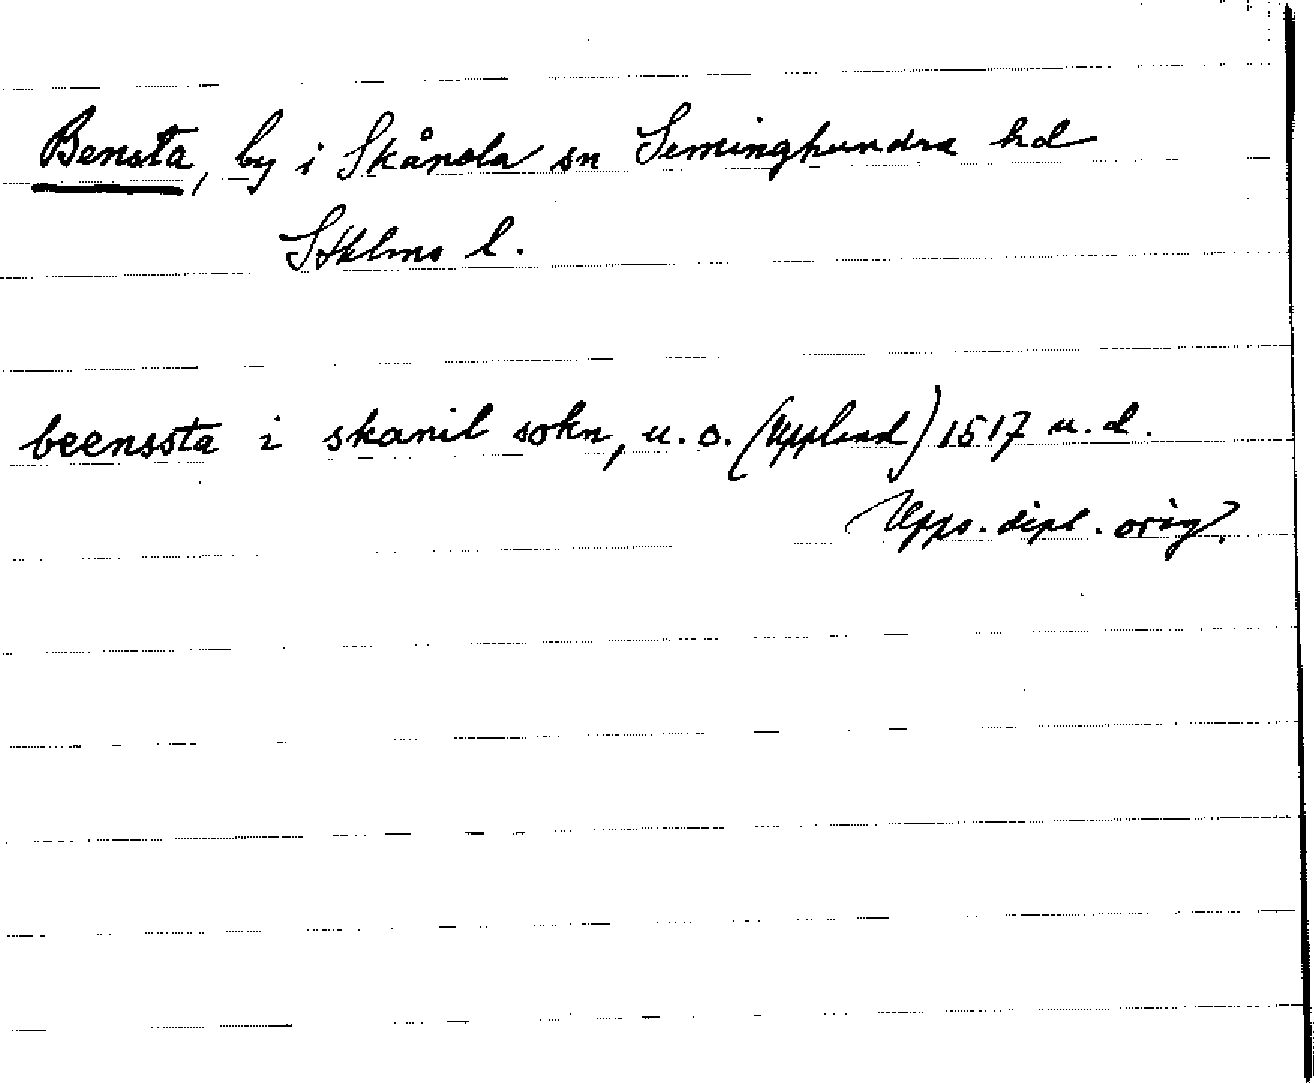 Bensta, by i Skånela sn Seminghundra hd
Sthlms l.
beenssta i skanil sokn, u. o. (Uppland) 1517 u. d.
Upps. dipl. orig.